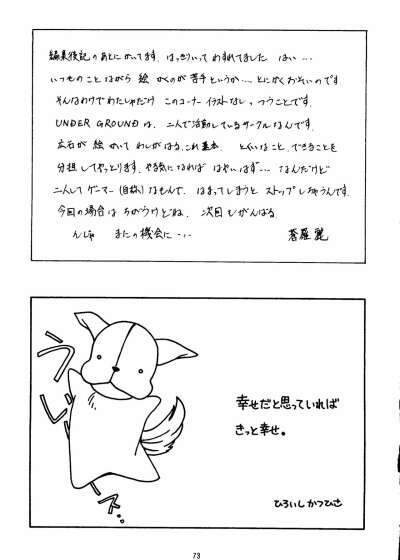 編集後記のあとにかいてます。はっきりいってわすれてました はい…
いつものことながら 絵 かくのが苦手というか…とにかくおそいのです
そんなわけでわたしゃだけ このコーナーイラストなしっつうことです。
UNDER GROUNDは、二人で活動しているサークルなんです。
広石が 絵 かいて わしがはる。これ基本。とくいなこと、できることを
分担してやっとります。やる気になれば はやいはず…なんだけど
二人してゲーマー(自称)なもんで、はまってしまうと ストップしちゃうんです。
今回の場合は ちがうけどね。次回もがんばる。
んじゃ またの機会に…
蒼羅 麗
幸せだと思っていれば
きっと幸せ。
ひろいし かつひさ
73